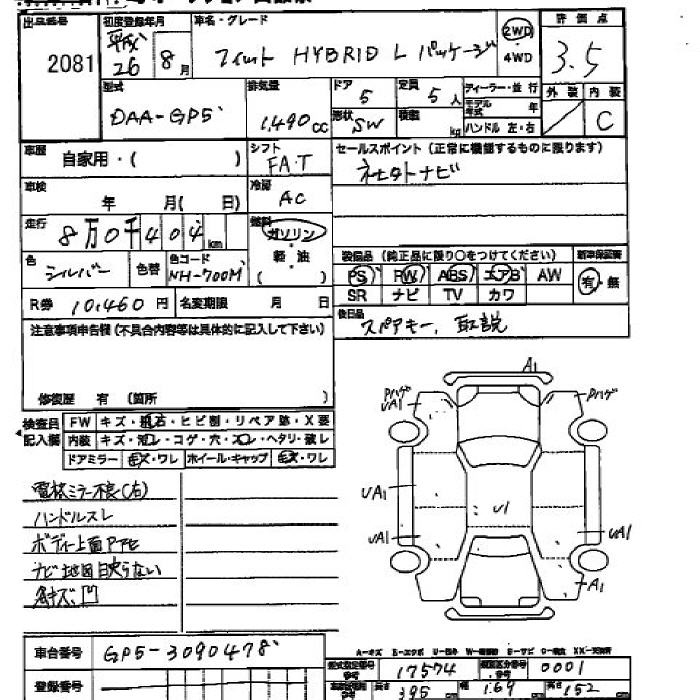 出品番号 初度登録年月 車名・グレード 評価点
2081 平成26 8月 フィット HYBRID L パッケージ 2WD・4WD 3.5
型式 排気量 ドア 定員 ディーラー・並行 外装 内装
DAA-GP5 1,490cc 5 5人 モデル年式 年
形状 SW 積載 kg ハンドル 左・右 C
車歴 自家用・( ) シフト FA.T セールスポイント(正常に機能するものに限ります)
車検 年 月( 日) 冷房 AC ナビ
走行 8万0千404km 燃料 ガソリン・軽油( )
色 シルバー 色替 色コード NH-700M 装備品(純正品に限り○をつけてください) 新車保証書
PS PW ABS エアB AW 有・無
SR ナビ TV カワ
R券 10,460円 名変期限 月 日
後日品 スペアキー、取説
注意事項申告欄(不具合内容等は具体的に記入して下さい)
修復歴 有(箇所 )
検査員記入欄 FW キズ・飛石・ヒビ割・リペア跡・X要
内装 キズ・汚レ・コゲ・穴・スレ・ヘタリ・破レ
ドアミラー キズ・ワレ ホイール・キャップ キズ・ワレ
電格ミラー不良(右)
ハンドルスレ
ボディー上面
ナビ地図映らない
キズ、凹
A1
Pハゲ UA1 Pハゲ
UA1 U1
UA1 UA1
A1
車台番号 GP5-3090478
A-キズ E-エクボ U-凹
型式指定番号 17574 類別区分番号 0001
登録番号 長さ 395cm 幅 169cm 高さ 152cm